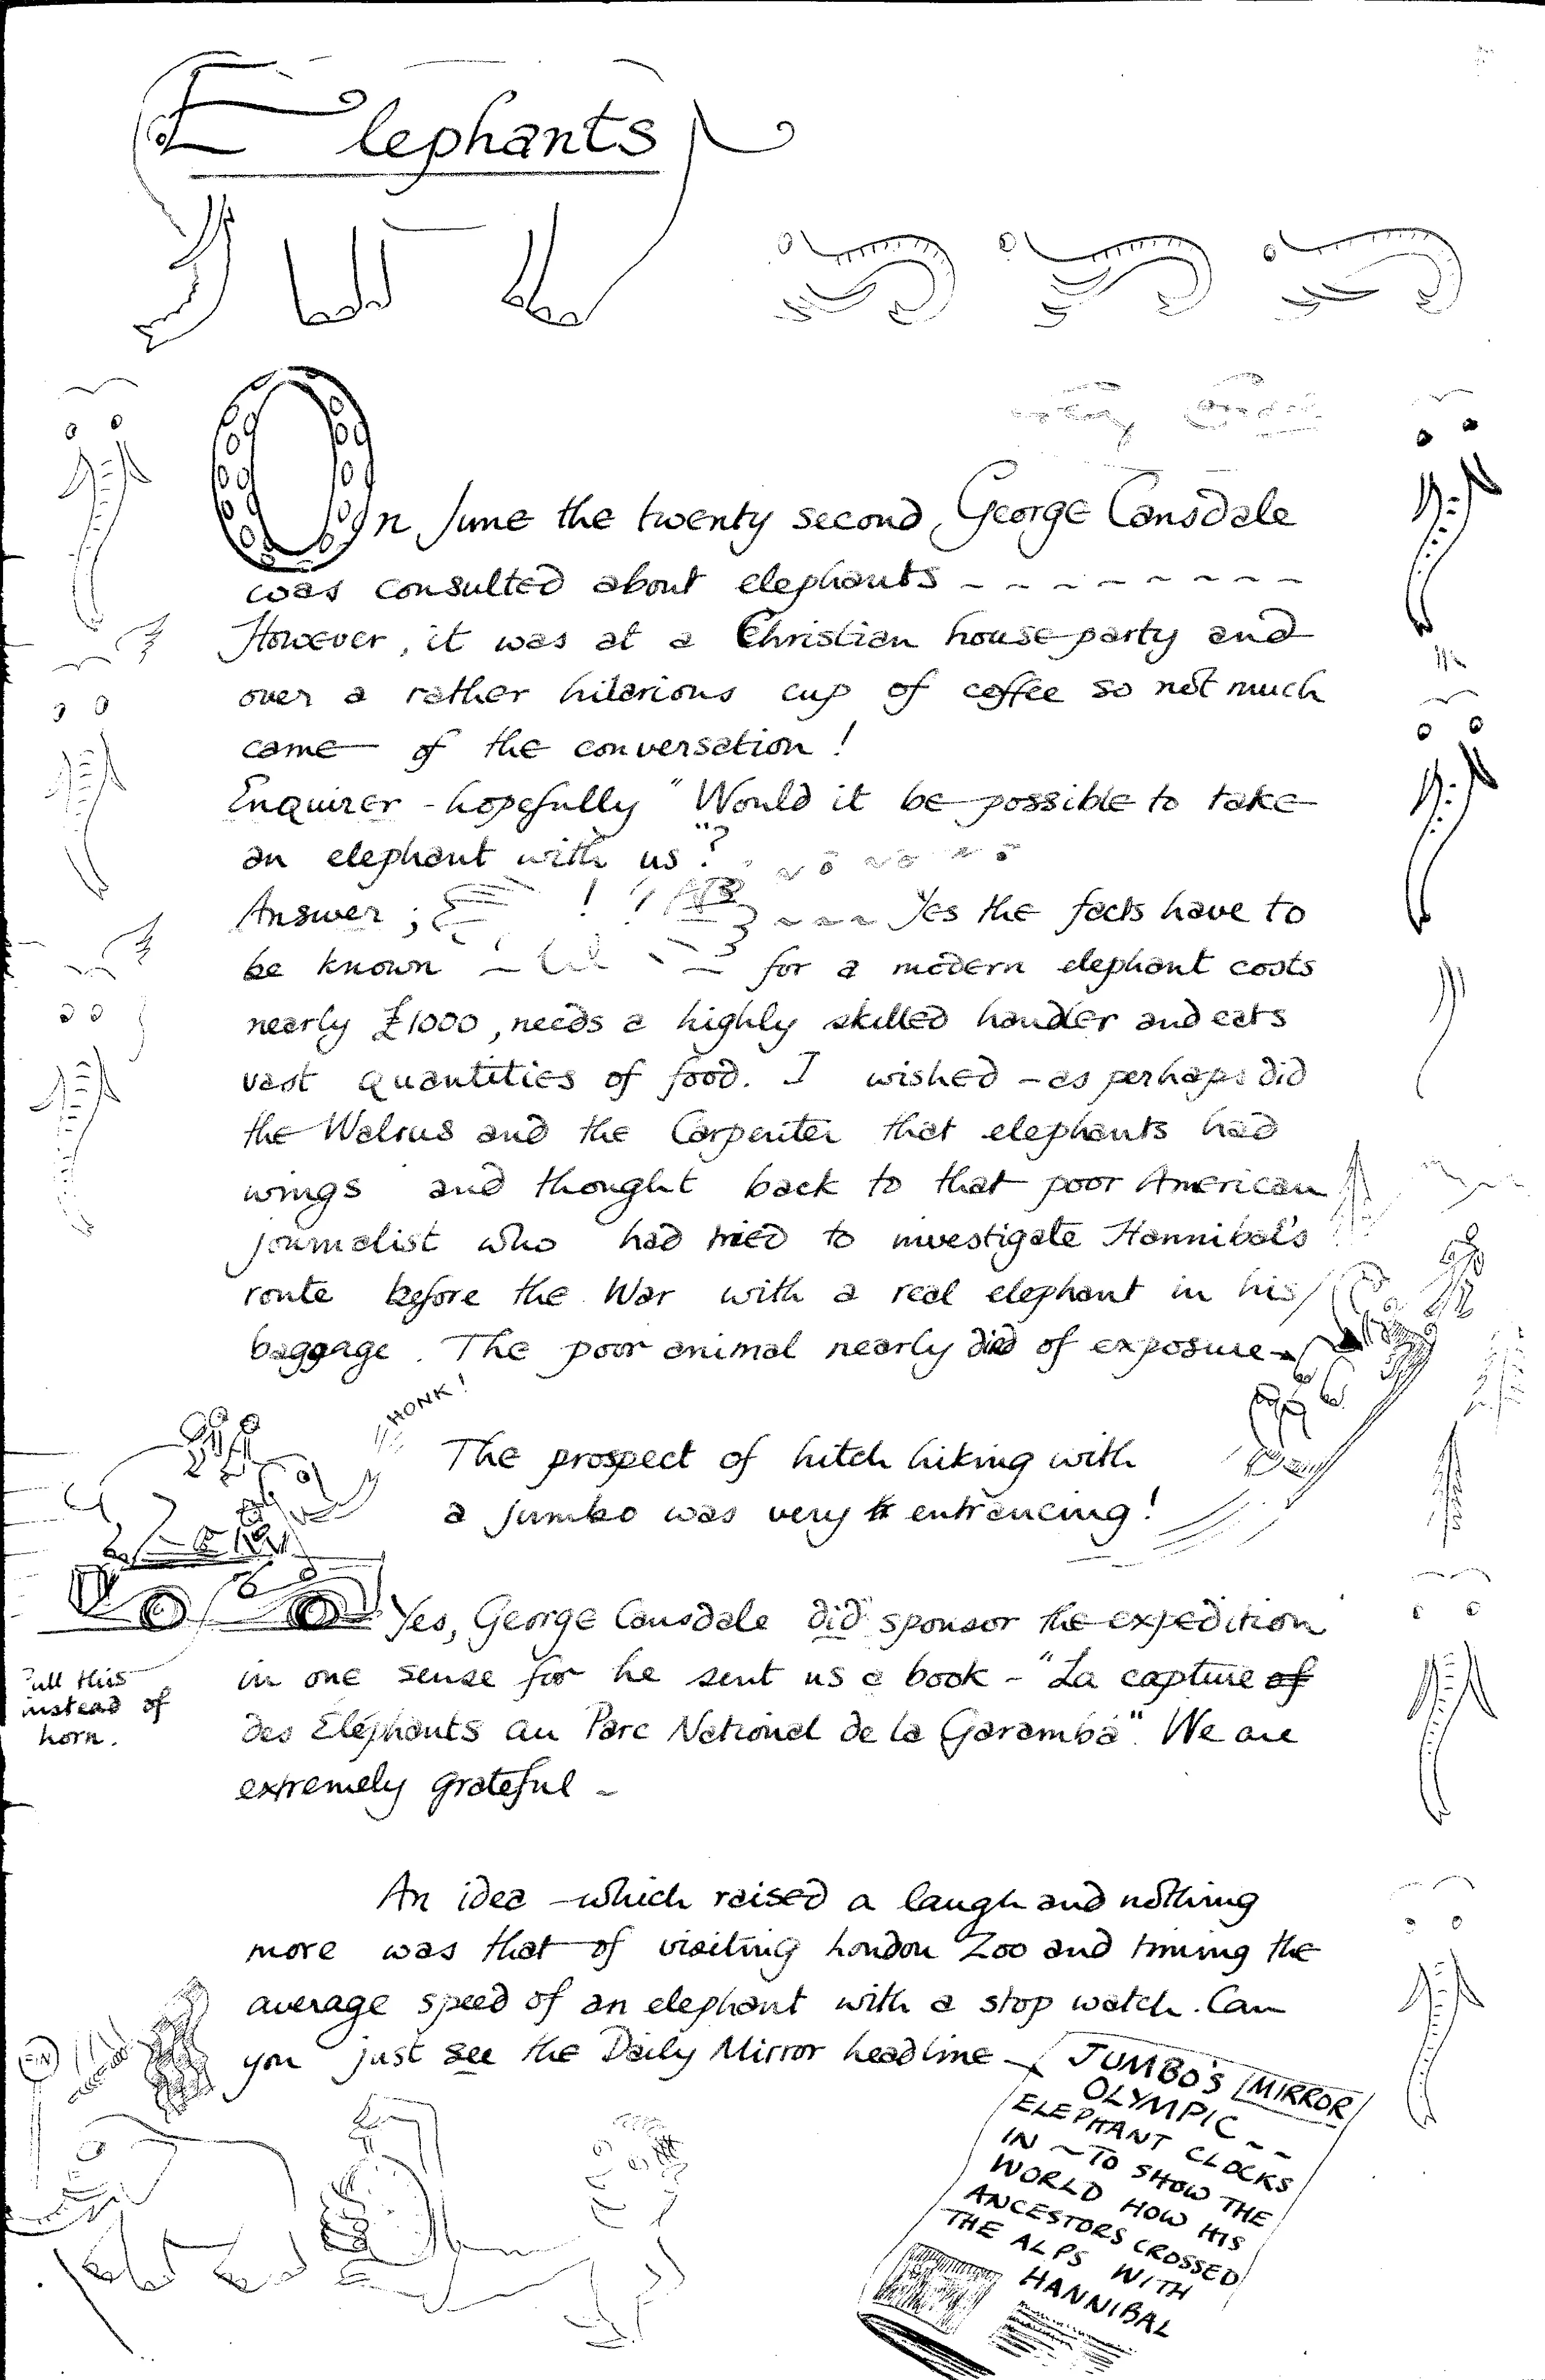 Elephants
On June the twenty second, George Cansdale
was consulted about elephants - - - - - - - -
However, it was at a Christian house party and
over a rather hilarious cup of coffee so not much
came of the conversation!
Enquirer - hopefully "Would it be possible to take
an elephant with us"?
Answer ; ! ! - - - Yes the facts have to
be known for a modern elephant costs
nearly £1000, needs a highly skilled handler and eats
vast quantities of food. I wished - as perhaps did
the Walrus and the Carpenter that elephants had
wings and thought back to that poor American
journalist who had tried to investigate Hannibal's
route before the War with a real elephant in his
baggage. The poor animal nearly died of exposure -
HONK!
The prospect of hitch hiking with
a jumbo was very entrancing!
Yes, George Cansdale did sponsor the expedition
in one sense for he sent us a book - "La capture of
des Eléphants au Parc National de la Garamba". We are
extremely grateful -
Pull this
instead of
horn.
An idea - which raised a laugh and nothing
more was that of visiting London Zoo and timing the
average speed of an elephant with a stop watch. Can
you just see the Daily Mirror headline -
JUMBO'S MIRROR
OLYMPIC - -
ELEPHANT CLOCKS
IN - TO SHOW THE
WORLD HOW HIS
ANCESTORS CROSSED
THE ALPS WITH
HANNIBAL